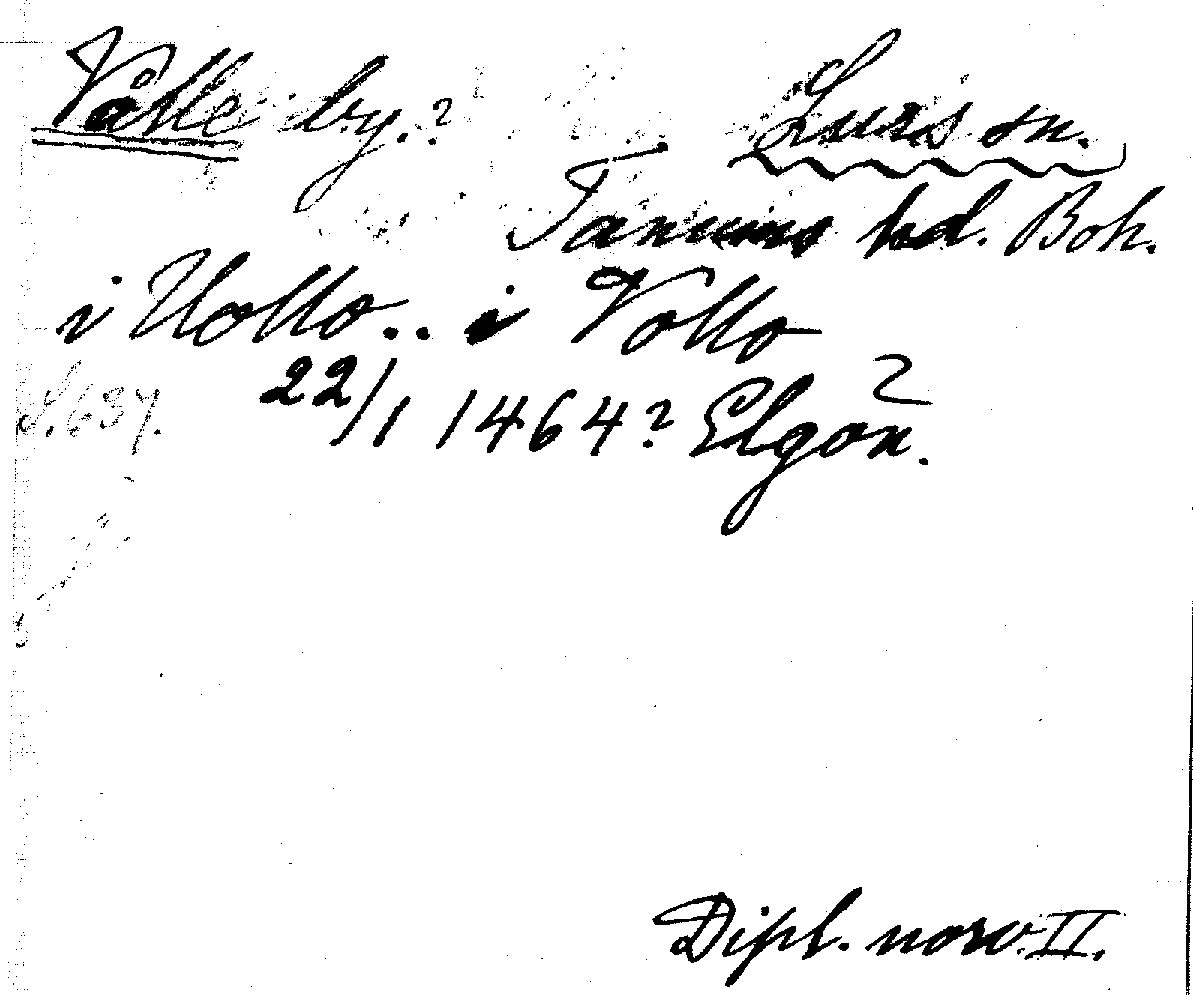 Våtte by.? Lurs sn.
Tanums hd. Boh.
i Uotto.. i Votto
S. 637. 22/1 1464? Elgön.
Dipl. norv. II.